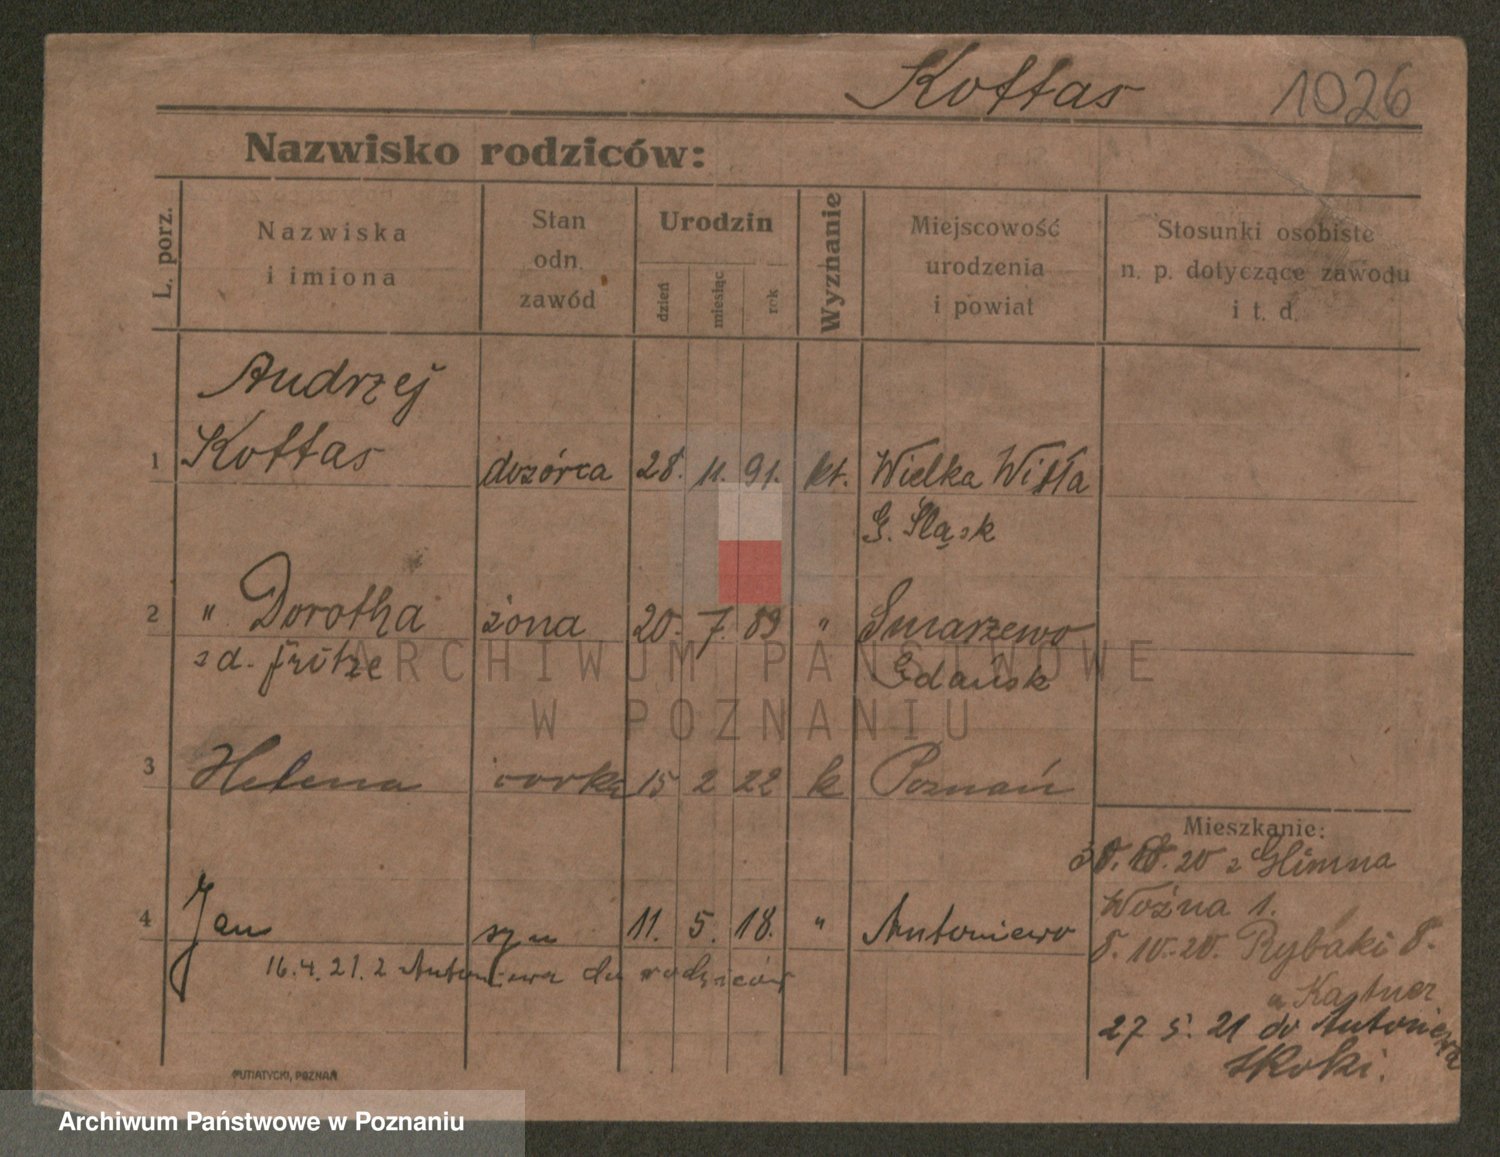 Kottas 1026
Nazwisko rodziców:
L. porz.
Nazwiska
i imiona
Stan
odn.
zawód
Urodzin
dzień
miesiąc
rok
Wyznanie
Miejscowość
urodzenia
i powiat
Stosunki osobiste
n. p. dotyczące zawodu
i t. d.
Andrzej
1 Kottas dozórca 28. 11. 91. kt. Wielka Wisła
G. Śląsk
2 " Dorotha żona 20. 7. 89 " Smarzewo
z d. Gdańsk
3 Helena corka 15 2 22 k Poznań
Mieszkanie:
20 z Glimna
Woźna 1.
4 Jan syn 11. 5. 18. " Antoniewo
8. 10. 20. Rybaki 8.
16.4.21. z Antoniewa do rodziców
u Kastner
27 5. 21 do Antoniewa
Skoki.
PUTIATYCKI, POZNAŃ
ARCHIWUM PAŃSTWOWE
W POZNANIU
Archiwum Państwowe w Poznaniu